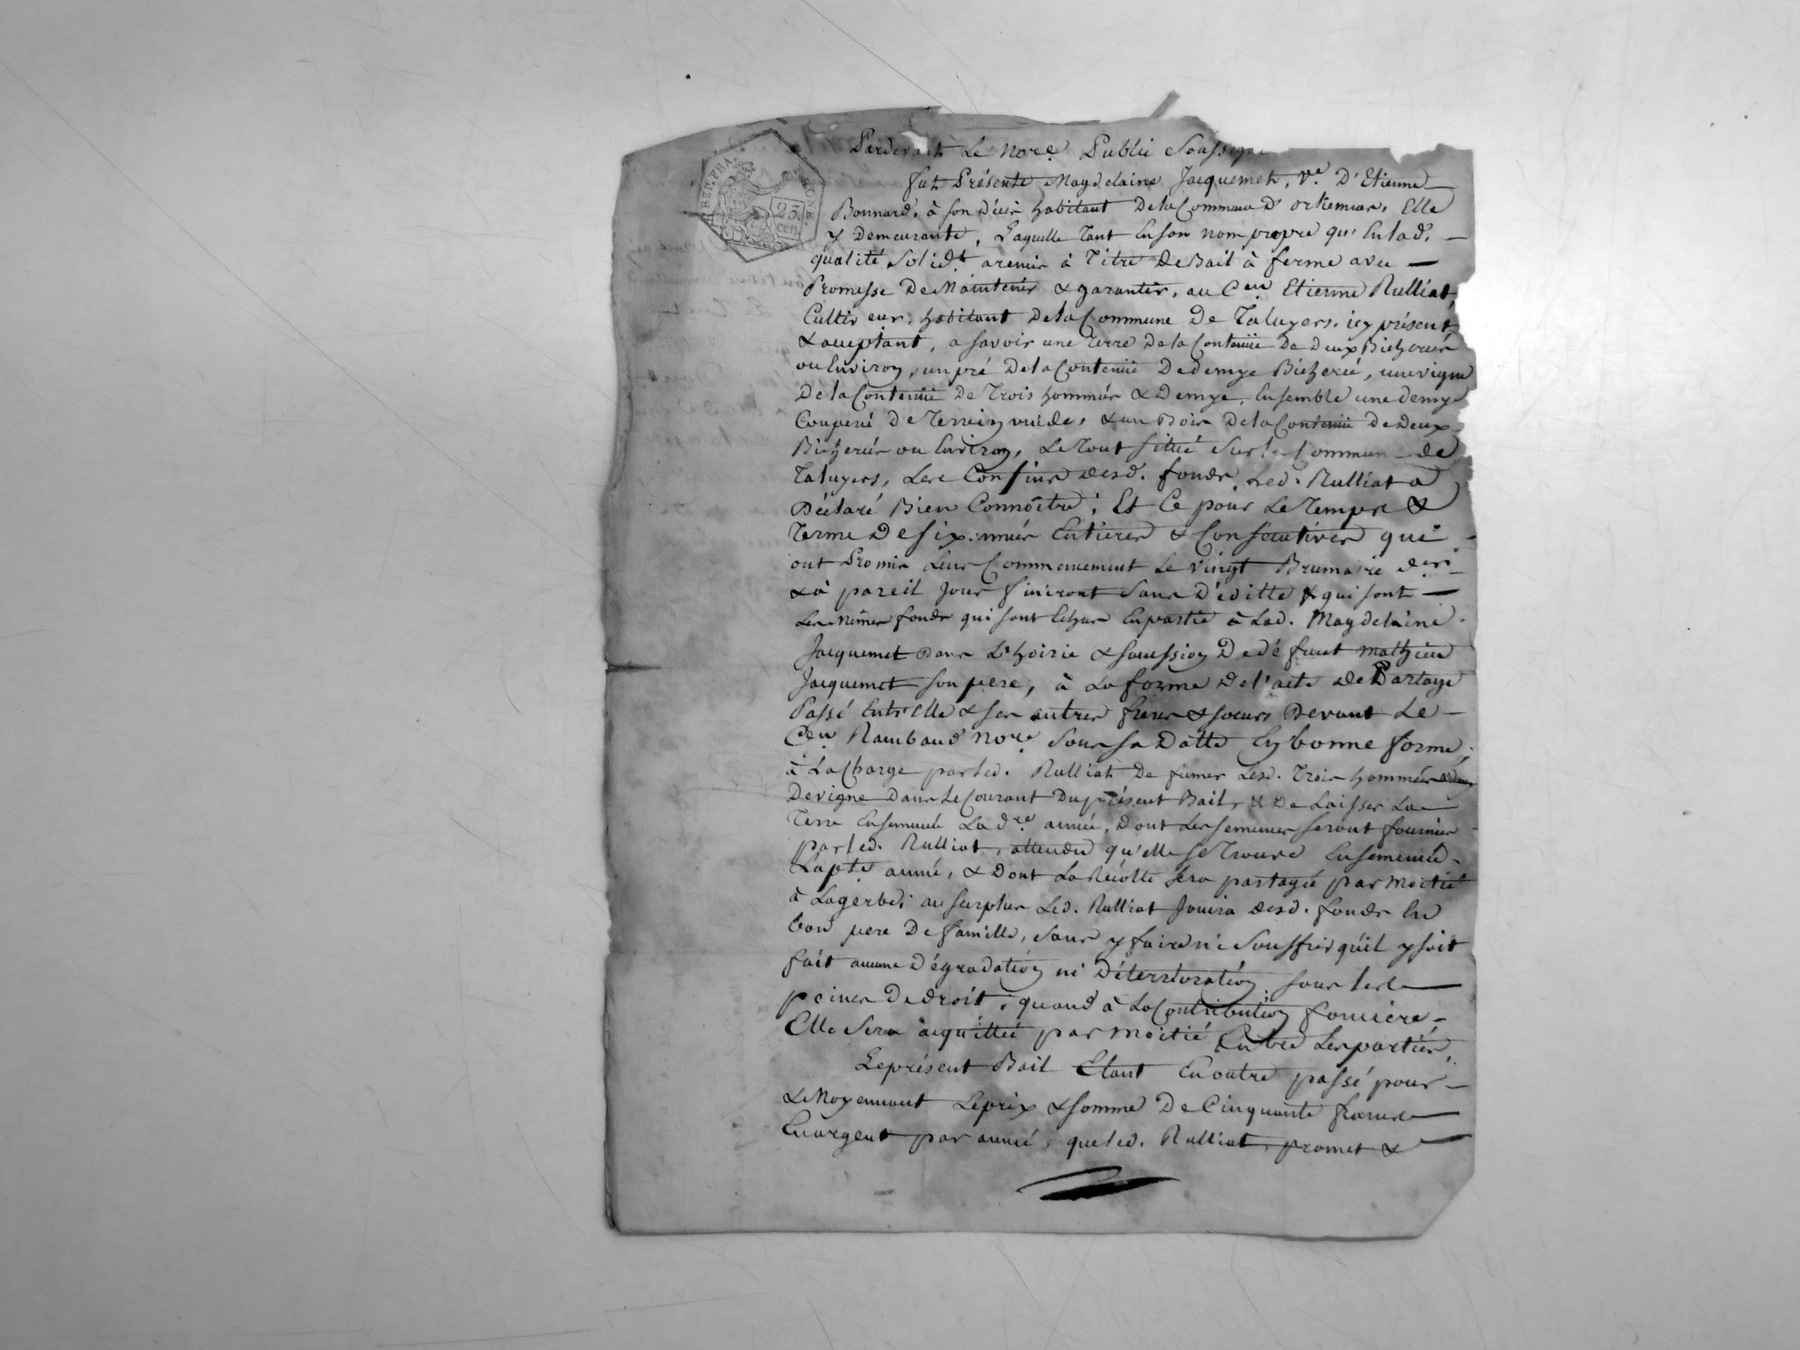 REP. FRA. RHONE
25 cen.
Pardevant Le Nore. Public Soussig
fut Présente Magdelaine Jacquemet, Ve. D'Etienne
Bonnard, à son décès habitant De la Commune d' orlienas, Elle
y Demeurante, Laquelle Tant En son nom propre qu' En lad.
qualité solidt. a remis à Titre De Bail à ferme avec
Promesse De Maintenir & garantir, au Cen. Etienne Rulliat,
Cultiveur, habitant De la Commune De Taluyers, icy présent
& acceptant, a savoir une Terre De la Contenüe De Deux Bicherées
ou Environ, un pré De la Contenüe De demye Bicherée, une vigne
De la Contenüe De Trois hommées & Demye, Ensemble une demye
Couperée De Terrein vuide, & un Bois De la Contenüe De Deux
Bicherées ou Environ, Le Tout situé sur la Commune de
Taluyers, Les Confins desd. fonds Led. Rulliat a
Déclaré Bien Connoître; Et Ce pour Le Temps &
Terme De six années Entieres & Consécutives qui
ont Promis Leur Commencement Le vingt Brumaire
& à pareil Jour finiront sans D'éditte & qui sont
Les mêmes fonds qui sont Echus En partie à Lad. Magdelaine
Jacquemet Dans L'hoirie & succession De défunt Mathieu
Jacquemet son pere, à La forme De l'acte De Partage
Passé Entr'Elle & ses autres freres & soeurs Devant Le
Cen. Rambaud Nore. sous sa Datte En bonne forme,
à La Charge par led. Rulliat De fumer Lesd. Trois hommées & demy
De vigne Dans Le Courant Du présent Bail, & De Laisser La
Terre Ensemencée La dre. année, Dont Les semences seront fournies
par led. Rulliat, attendu qu'elle se Trouve Ensemencée
La pte. année, & Dont La Récolte sera partagée par Moitié
à La gerbe; au surplus Led. Rulliat Jouira desd. fonds En
bon pere De famille, sans y faire ni Souffrir qu'il y soit
fait aucune Dégradation ni Déterrioration, sous les
peines De droit, quand à La Contribution fonciere
Elle sera acquittée par Moitié Entre Les parties,
Le présent Bail Etant En outre passé pour
& Moyennant Le prix & somme De Cinquante francs
En argent par année, que led. Rulliat, promet &